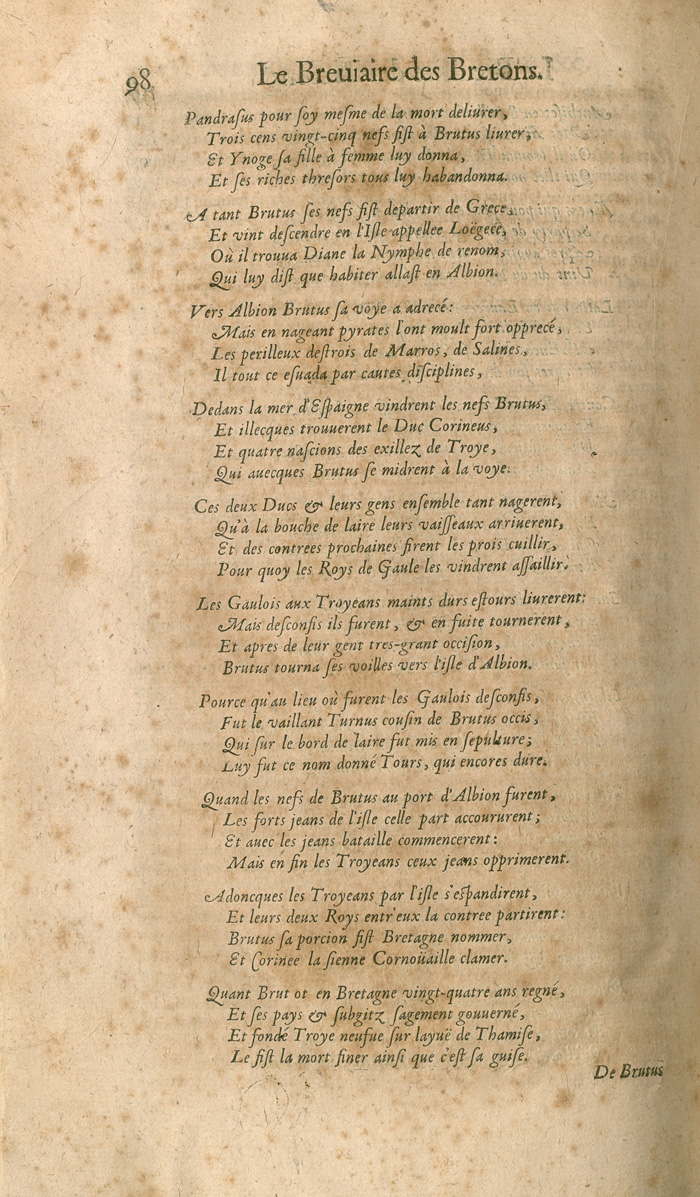 98 Le Breuiaire des Bretons.
Pandrasus pour soy mesme de la mort deliurer,
Trois cens vingt-cinq nefs fist à Brutus liurer,
Et Ynoge sa fille à femme luy donna,
Et ses riches thresors tous luy habandonna.
A tant Brutus ses nefs fist departir de Grece,
Et vint descendre en l'Isle appellee Loëgece,
Où il trouua Diane la Nymphe de renom,
Qui luy dist que habiter allast en Albion.
Vers Albion Brutus sa voye a adrecé:
Mais en nageant pyrates l'ont moult fort opprecé,
Les perilleux destrois de Marros, de Salines,
Il tout ce esuada par cautes disciplines,
Dedans la mer d'Espaigne vindrent les nefs Brutus,
Et illecques trouuerent le Duc Corineus,
Et quatre nascions des exillez de Troye,
Qui auecques Brutus se midrent à la voye.
Ces deux Ducs & leurs gens ensemble tant nagerent,
Qu'à la bouche de laire leurs vaisseaux arriuerent,
Et des contrees prochaines firent les prois cuillir,
Pour quoy les Roys de Gaule les vindrent assaillir.
Les Gaulois aux Troyeans maints durs estours liurerent:
Mais desconfis ils furent, & en fuite tournerent,
Et apres de leur gent tres-grant occision,
Brutus tourna ses voilles vers l'isle d'Albion.
Pource qu'au lieu où furent les Gaulois desconfis,
Fut le vaillant Turnus cousin de Brutus occis,
Qui sur le bord de laire fut mis en sepulture;
Luy fut ce nom donné Tours, qui encores dure.
Quand les nefs de Brutus au port d'Albion furent,
Les forts jeans de l'isle celle part accoururent;
Et auec les jeans bataille commencerent:
Mais en fin les Troyeans ceux jeans opprimerent.
Adoncques les Troyeans par l'isle s'espandirent,
Et leurs deux Roys entr'eux la contree partirent:
Brutus sa porcion fist Bretagne nommer,
Et Corinee la sienne Cornoüaille clamer.
Quant Brut ot en Bretagne vingt-quatre ans regné,
Et ses pays & subgitz sagement gouuerné,
Et fondé Troye neufue sur layuë de Thamise,
Le fist la mort finer ainsi que c'est sa guise.
De Brutus